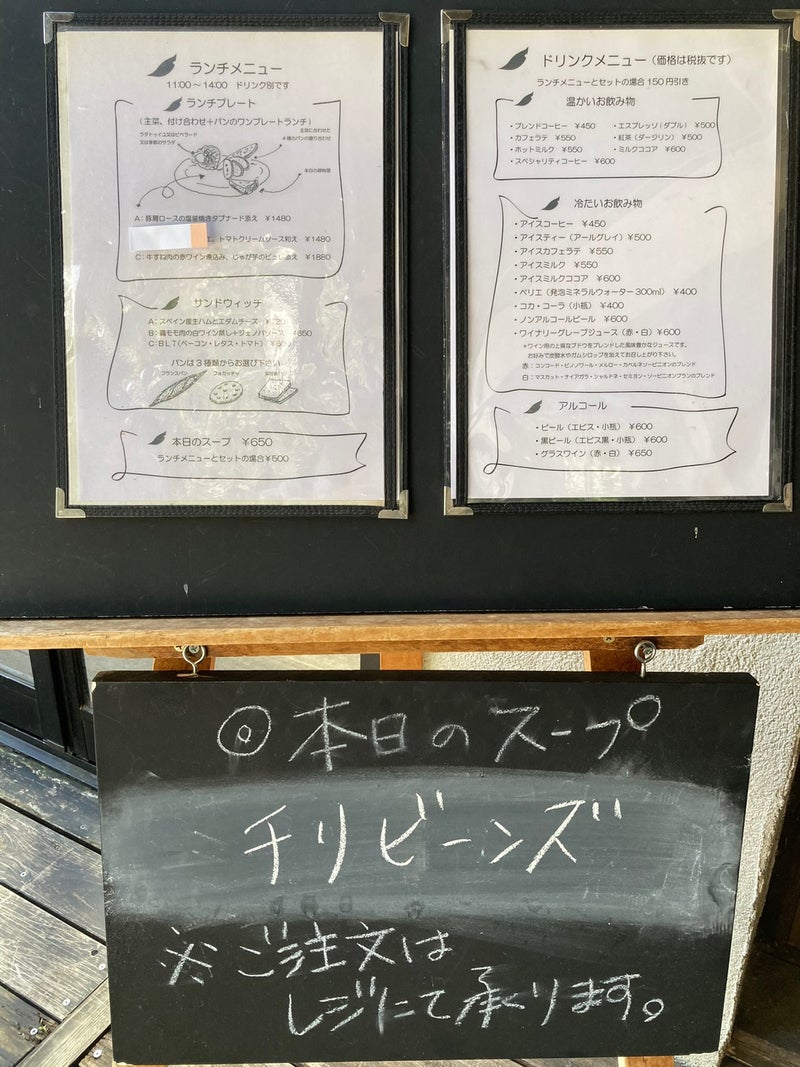 ランチメニュー
11:00～14:00 ドリンク別です
ランチプレート
(主菜、付け合わせ+パンのワンプレートランチ)
ラタトゥイユ又はピペラード
又は季節のサラダ
主菜に合わせた
4種のパンの盛り合わせ
本日の卵料理
A:豚肩ロースの塩釜焼きタプナード添え ¥1480
トマトクリームソース和え ¥1480
C:牛すね肉の赤ワイン煮込み、じゃが芋のピュレ添え ¥1880
サンドウィッチ
A:スペイン産生ハムとエダムチーズ
B:鶏モモ肉の白ワイン蒸し+ジェノバソース
C:BLT(ベーコン・レタス・トマト)
パンは3種類からお選び下さい
フランスパン フォカッチャ
本日のスープ ¥650
ランチメニューとセットの場合¥500
ドリンクメニュー(価格は税抜です)
ランチメニューとセットの場合 150円引き
温かいお飲み物
・ブレンドコーヒー ¥450 ・エスプレッソ(ダブル) ¥500
・カフェラテ ¥550 ・紅茶(ダージリン) ¥500
・ホットミルク ¥550 ・ミルクココア ¥600
・スペシャリティコーヒー ¥600
冷たいお飲み物
・アイスコーヒー ¥450
・アイスティー(アールグレイ) ¥500
・アイスカフェラテ ¥550
・アイスミルク ¥550
・アイスミルクココア ¥600
・ペリエ(発泡ミネラルウォーター300ml) ¥400
・コカ・コーラ(小瓶) ¥400
・ノンアルコールビール ¥600
・ワイナリーグレープジュース(赤・白) ¥600
*ワイン用の上質なブドウをブレンドした風味豊かなジュースです。
お好みで炭酸水やガムシロップを加えてお召し上がり下さい。
赤:コンコード・ピノノワール・メルロー・カベルネソービニオンのブレンド
白:マスカット・ナイアガラ・シャルドネ・セミヨン・ソービニオンブランのブレンド
アルコール
・ビール(エビス・小瓶) ¥600
・黒ビール(エビス黒・小瓶) ¥600
・グラスワイン(赤・白) ¥650
◎本日のスープ
チリビーンズ
※ご注文は
レジにて承ります。